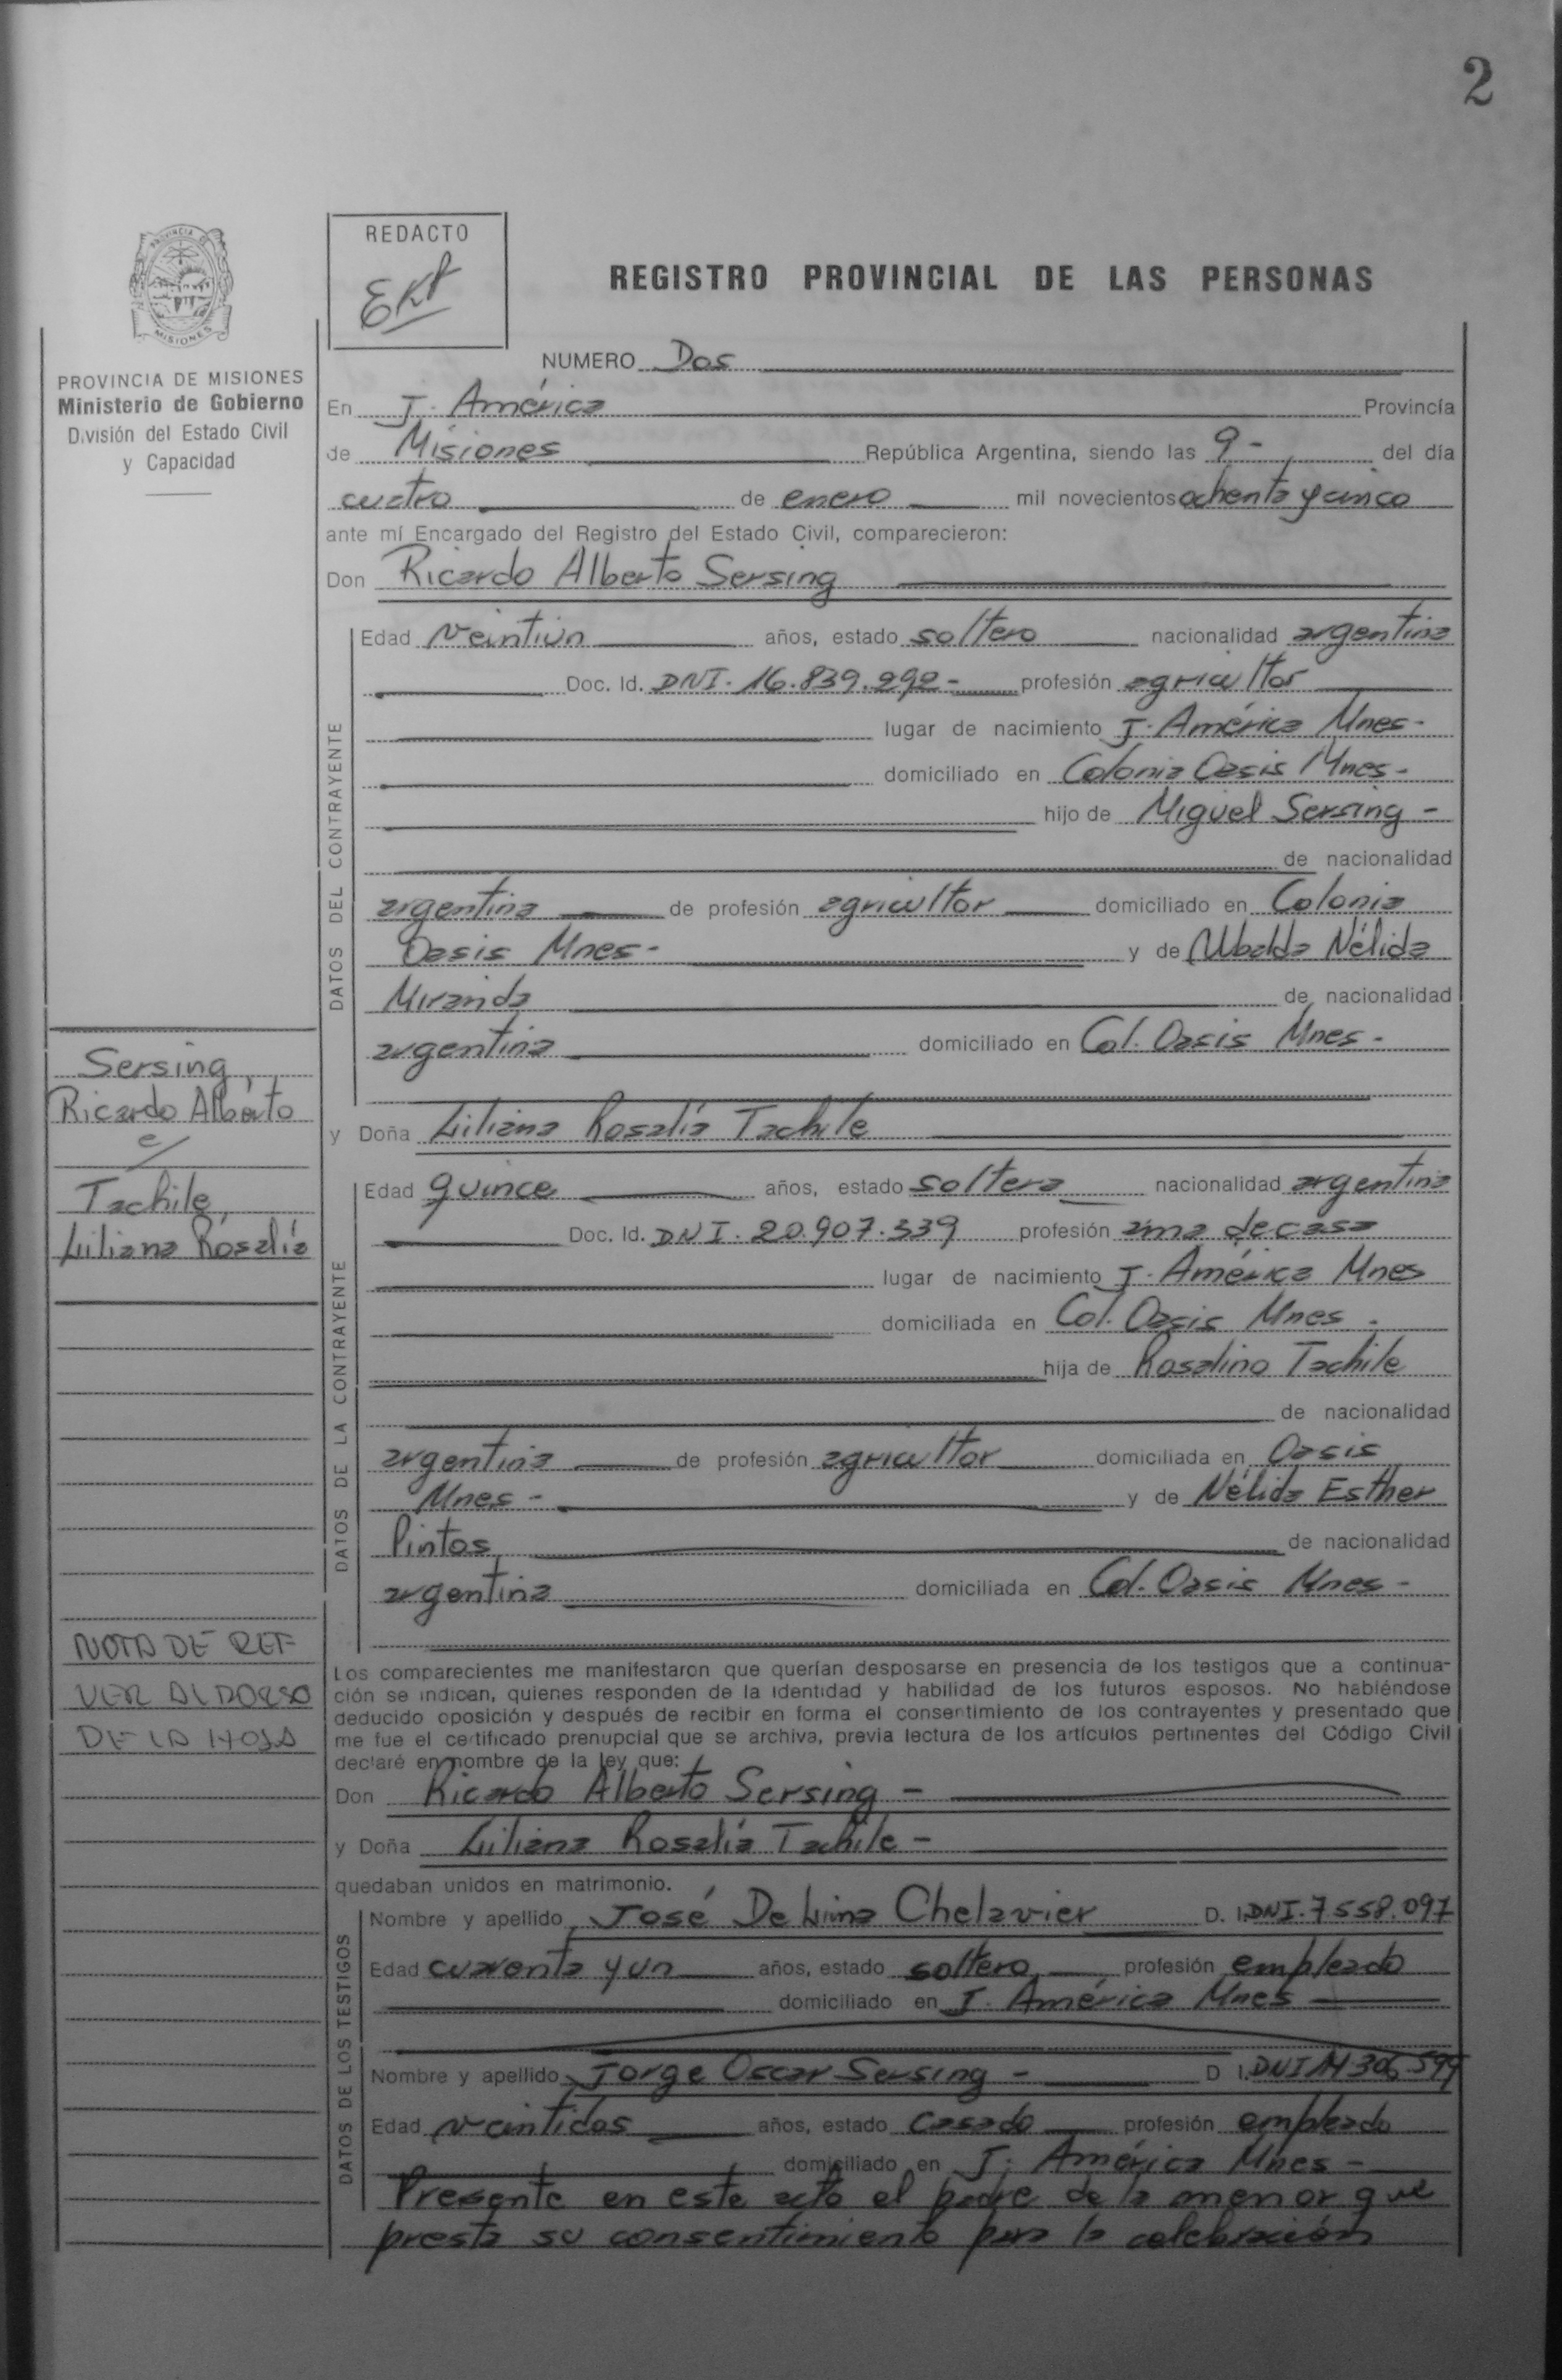 2
PROVINCIA DE
MISIONES
PROVINCIA DE MISIONES
Ministerio de Gobierno
División del Estado Civil
y Capacidad
REDACTO
REGISTRO PROVINCIAL DE LAS PERSONAS
NUMERO Dos
En J. América Provincia
de Misiones República Argentina, siendo las 9 - del día
cuatro de enero mil novecientos ochenta y cinco
ante mí Encargado del Registro del Estado Civil, comparecieron:
Don Ricardo Alberto Sersing
DATOS DEL CONTRAYENTE
Edad veintiún años, estado soltero nacionalidad argentina
Doc. Id. DNI. 16.839.292- profesión agricultor
lugar de nacimiento J. América Mnes-
domiciliado en Colonia Oasis Mnes-
hijo de Miguel Sersing -
de nacionalidad
argentina de profesión agricultor domiciliado en Colonia
Oasis Mnes- y de Ubalda Nélida
Miranda de nacionalidad
argentina domiciliado en Col. Oasis Mnes-
y Doña Liliana Rosalía Tachile
Sersing,
Ricardo Alberto
c/
Tachile,
Liliana Rosalía
DATOS DE LA CONTRAYENTE
Edad quince años, estado soltera nacionalidad argentina
Doc. Id. DNI. 20.907.339 profesión ama de casa
lugar de nacimiento J. América Mnes
domiciliada en Col. Oasis Mnes.
hija de Rosalino Tachile
de nacionalidad
argentina de profesión agricultor domiciliada en Oasis
Mnes- y de Nélida Esther
Pintos de nacionalidad
argentina domiciliada en Col. Oasis Mnes-
NOTA DE REF
VER AL DORSO
DE LA HOJA
Los comparecientes me manifestaron que querían desposarse en presencia de los testigos que a continua-
ción se indican, quienes responden de la identidad y habilidad de los futuros esposos. No habiéndose
deducido oposición y después de recibir en forma el consentimiento de los contrayentes y presentado que
me fue el certificado prenupcial que se archiva, previa lectura de los artículos pertinentes del Código Civil
declaré en nombre de la ley que:
Don Ricardo Alberto Sersing -
y Doña Liliana Rosalía Tachile -
quedaban unidos en matrimonio.
DATOS DE LOS TESTIGOS
Nombre y apellido José De Lima Chelavier D. I. DNI. 7.558.097
Edad cuarenta y un años, estado soltero profesión empleado
domiciliado en J. América Mnes
Nombre y apellido Jorge Oscar Sersing - D I. DNI 14 306 599
Edad veintidos años, estado casado profesión empleado
domiciliado en J. América Mnes -
Presente en este acto el padre de la menor que
presta su consentimiento para la celebración